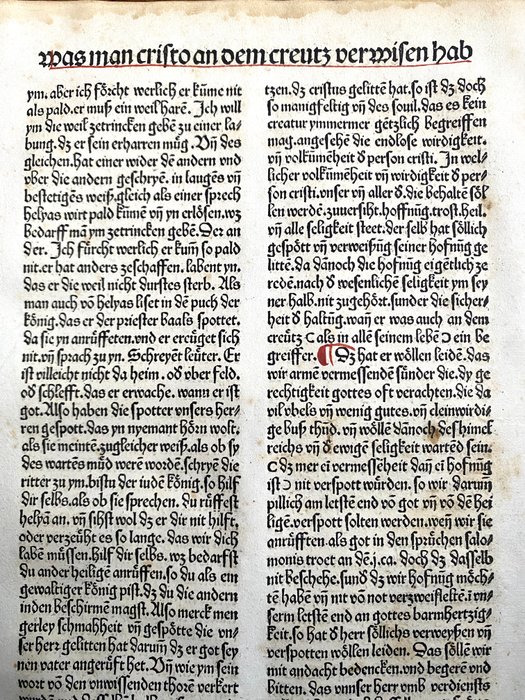 was man cristo an dem creutz verwisen hab
ym. aber ich förcht werlich er kūme nit
als pald. er muß ein weil harē. Ich will
ym die weil zetrincken gebē zu einer la⸗
bung. dz er sein erharren müg. Vn̄ des
gleichen. hat einer wider dē andern vnd
vber die andern geschryē. in laugēs vn̄
bestetigēs weiß. gleich als einer sprech
helyas wirt pald kūmē vn̄ yn erlösen. wz
bedarff mā ym zetrincken gebē. Der an
der. Ich fürcht werlich er kum̄ so pald
nit. er hat anders zeschaffen. labent yn.
das er die weil nicht durstes sterb. Als
man auch vō helyas liset in dē půch der
kōnig. das er der priester baals spottet.
da sie yn anrůfften. vnd er ereüget sich
nit. vn̄ sprach zu yn. Schreyēt leüter. Er
ist villeicht nicht da heim. od̄ vber feld.
od̄ schlefft. das er erwache. wann er ist
got. Also haben die spotter vnsers her⸗
ren gespott. das yn nyemant hōrn wolt.
als sie meintē. zugleicher weiß. als ob sy
des wartēs müd werē wordē. schryē die
ritter zu ym. bistu der iudē kōnig. so hilf
dir selbs. als ob sie sprechen. du růffest
helyā an. vn̄ sihst wol dz er dir nit hilft.
oder verzeüht es so lange. das wir dich
labē müssen. hilf dir selbs. wz bedarfst
du ander heiligē anrůffen. so du als ein
gewaltiger kōnig pist. dz du die andern
inden beschirmē magst. Also merck men
gerley schmahheit vn̄ gespōtte die vn⸗
ser herr gelitten hat darum̄ dz er got sey
nen vater angerůft het. Vn̄ wie ym sein
wort von den vnwissenden thorē verkert
tzen. dz cristus gelittē hat. so ist dz doch
so manigfeltig vn̄ des souil. das es kein
creatur ymmermer gētzlich begreiffen
mag. angesehē die endlose wirdigkeit.
vn̄ volkūmēheit d̄ person cristi. In wel⸗
licher volkūmēheit vn̄ wirdigkeit d̄ per⸗
son cristi. vnser vn̄ aller d̄. die behaltē sōl
len werdē. zuuersiht. hoffnūg. trost. heil.
vn̄ alle seligkeit steet. der selb hat sōllich
gespōtt vn̄ verweißūg seiner hofnūg ge
littē. da dānoch die hofnūg eigētlich ze
redē. nach d̄ wesenlichē seligkeit ym sey
ner halb. nit zugehōrt. sunder die sicher⸗
heit d̄ haltūg. wan̄ er was auch an dem
creütz (als in allē seinem lebē) ein be
greiffer. Dz hat er wōllen leidē. das
wir armē vermessendē sünder die. dy ge
rechtigkeit gottes oft verachten. die da
vil vbels vn̄ wenig gutes. vn̄ clein wirdi⸗
ge bůß thůd. vn̄ wōllē dānoch des himel
reichs vn̄ d̄ ewigē seligkeit wartēd sein.
(dz mer ei vermesseheit dan̄ ei hofnūg
ist) nit verspott würden. so wir darum̄
pillich am letstē end vō got vn̄ vō dē hei
ligē. verspott solten werden. weñ wir sie
anrůfften. als got in den sprüchen salo⸗
monis troet an dē. j. ca. doch dz dasselb
nit beschehe. sund̄ dz wir hofnūg mōch⸗
tē habē vn̄ nit vō not verzweifletē. in vn⸗
serin letstē end an gottes barmhertzig⸗
keit. so hat d̄ herr sōllichs verweyßen vn̄
verspotten wōllen leiden. Das sōllē wir
mit andacht bedencken. vnd begerē vnd
bitten. das vnser herr vmb verdiensts